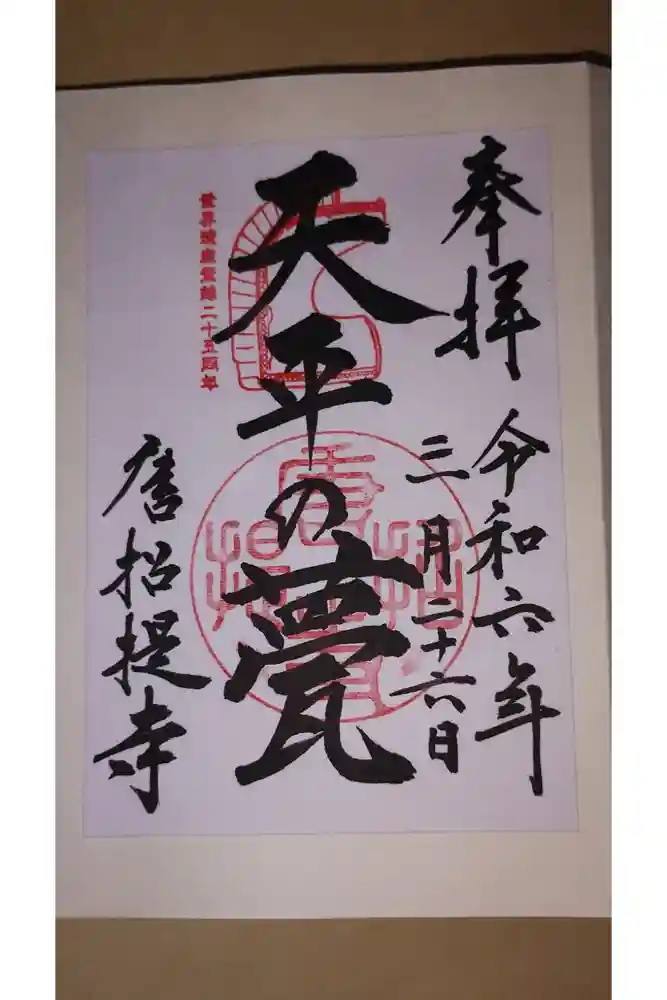 奉拝
令和六年
三月二十六日
天平の甍
世界遺産登録二十五周年
唐招提寺